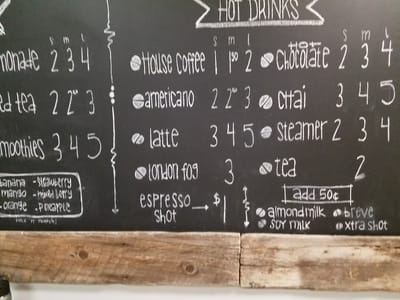 HOT DRINKS
s m l
monade 2 3 4
ed tea 2 2⁵⁰ 3
moothies 3 4 5
banana - strawberry
mango
orange - pineapple
s m l
House coffee 1 1⁵⁰ 2
americano 2 2⁵⁰ 3
latte 3 4 5
london fog 3
espresso shot → $1
s m l
hot
chocolate 2 3 4
chai 3 4 5
steamer 2 3 4
tea 2
add 50¢
almond milk breve
soy milk xtra shot